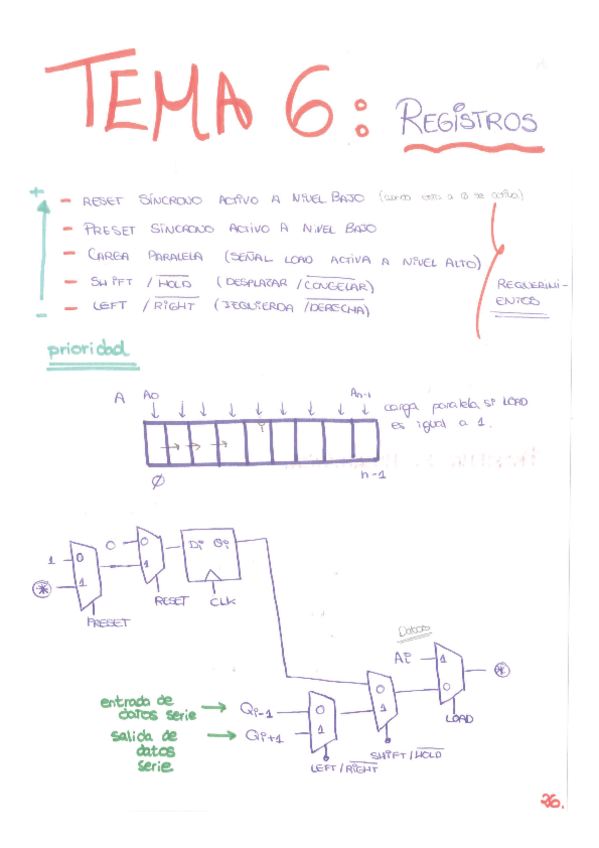 TEMA 6: REGISTROS
+
- RESET SÍNCRONO ACTIVO A NIVEL BAJO (cuando esta a 0 se activa)
- PRESET SÍNCRONO ACTIVO A NIVEL BAJO
- CARGA PARALELA (SEÑAL LOAD ACTIVA A NIVEL ALTO)
- SHIFT / HOLD (DESPLAZAR / CONGELAR)
- LEFT / RIGHT (IZQUIERDA / DERECHA)
-
REQUERIMI-
ENTOS
prioridad
A A0 An-1
carga paralela si LOAD
es igual a 1.
i
Ø n-1
1 0
* 1
PRESET
0 0
1
RESET
Di Qi
CLK
Datos
Ai 1 *
0
LOAD
0
1
SHIFT / HOLD
entrada de
datos serie → Qi-1 0
salida de
datos
serie → Qi+1 1
LEFT / RIGHT
26.